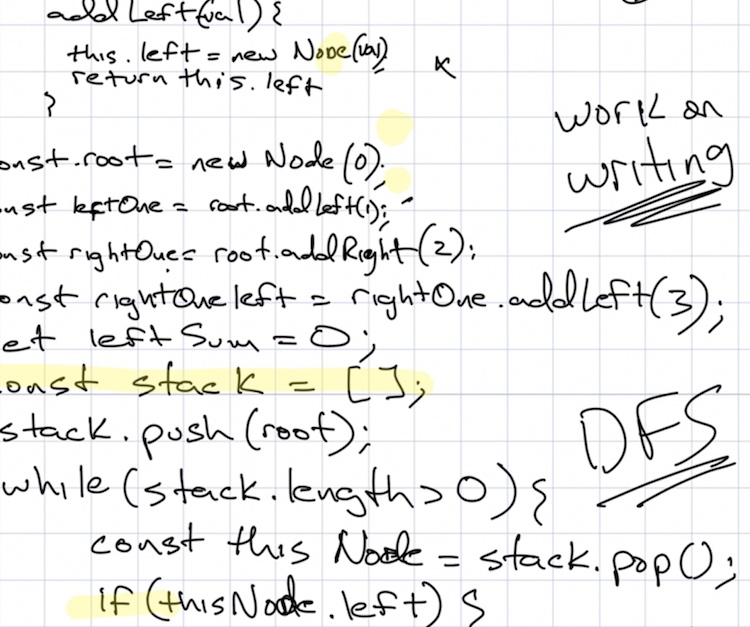 addLeft(val) {
this.left = new Node(val)
return this.left
}
work on
writing
onst.root = new Node(0);
nst leftOne = root.addLeft(1);
nst rightOne = root.addRight(2);
onst rightOneleft = rightOne.addLeft(3);
et leftSum = 0;
onst stack = [];
stack.push(root);
DFS
while (stack.length > 0) {
const thisNode = stack.pop();
if (thisNode.left) {